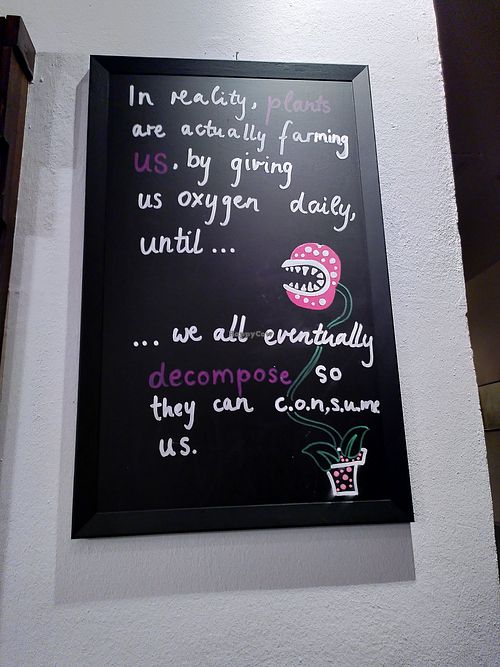 In reality, plants
are actually farming
us. by giving
us oxygen daily,
until ...
... we all eventually
decompose so
they can c.o.n,s.u.me
us.